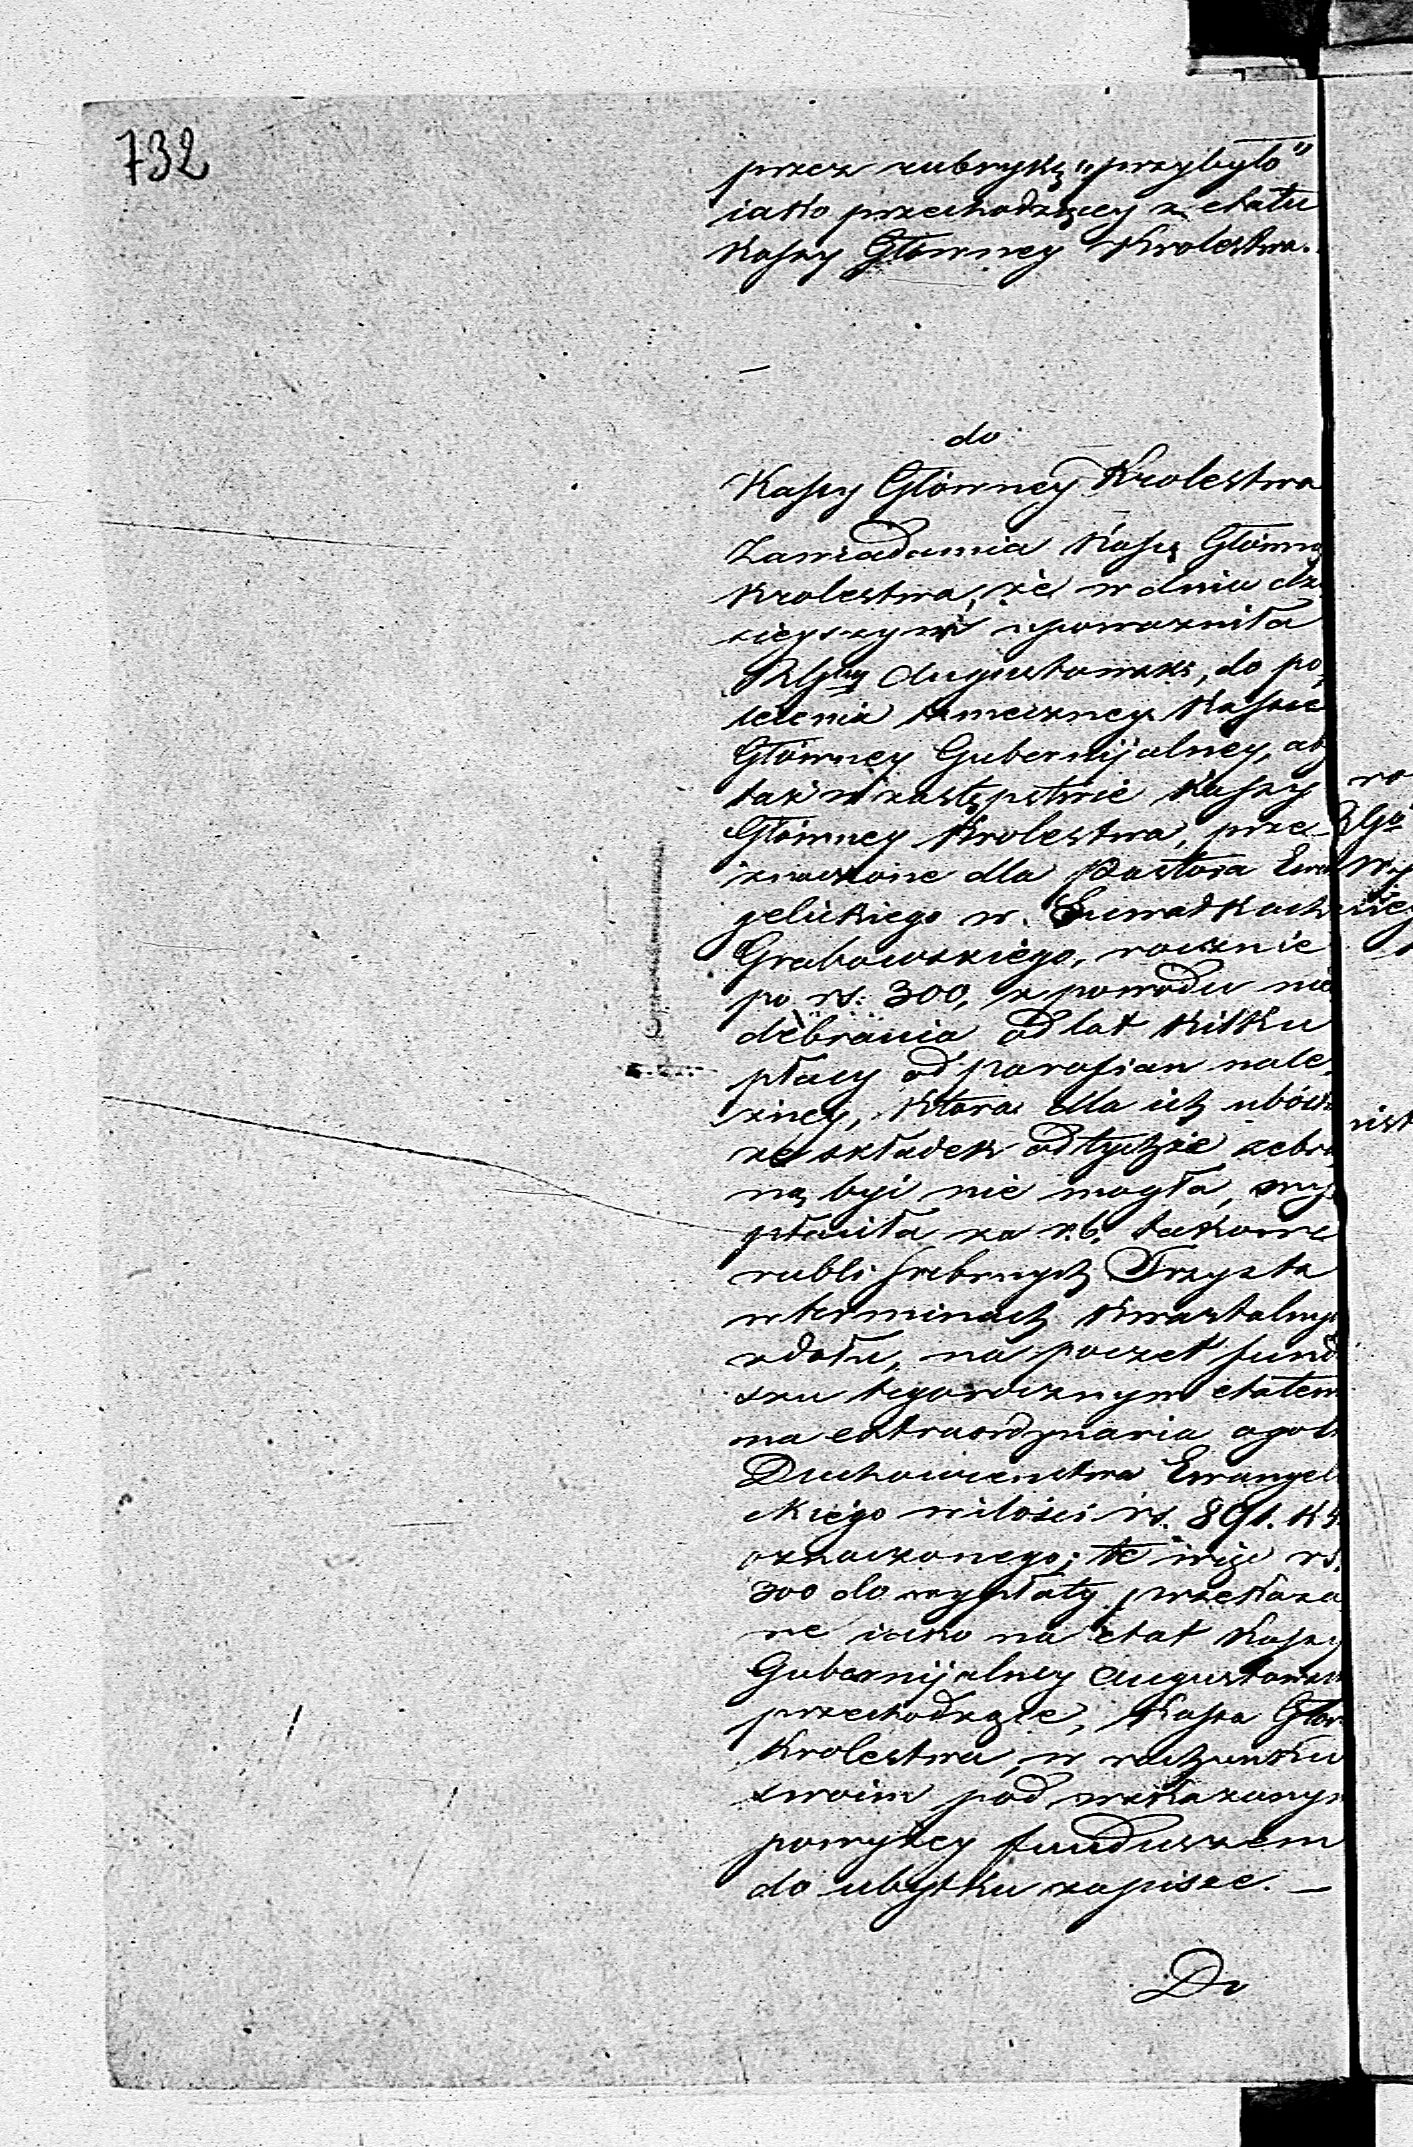 732
przez rubrykę "przybyło"
iako przechodzący z etatu
Kassy Główney Krolestwa.
do
Kassy Główney Krolestwa
Zawiadamia Kassę Główną
Krolestwa, że w dniu dzi
sieyszym upoważniła
RGbny Augustowski, do po
lecenia tameczney Kassie
Główney Gubernijalney, aby
taż w zastępstwie Kassy
Główney Krolestwa, prze-
znaczone dla Pastora Ewan
gelickiego w Suwałkach
Grabowskiego, rocznie
po rs: 300, z powodu nie
debrania od lat kilku
płacy od parafian nale
żney, ktora dla ich ubós
ze składek odtychże zebra
ną być nie mogła, wy
płaciła za r.b. takowe
rubli srebrnych Trzysta
w terminach kwartalnych
zdołu, na poczet fundu
szu tegorocznym etatem
na extraordynaria ogólne
Duchowieństwa Ewangeli
ckiego wilości rs. 891. k
oznaczonego; te więc rs.
300 do wypłaty przekaza
ne iako na etat Kassy
Gubernijalney Augustowsk
przechodzące, Kassa Głów
Krolestwa, w rachunku
swoim pod wskazanym
powyżey funduszem
do ubytku zapisze. —
Do